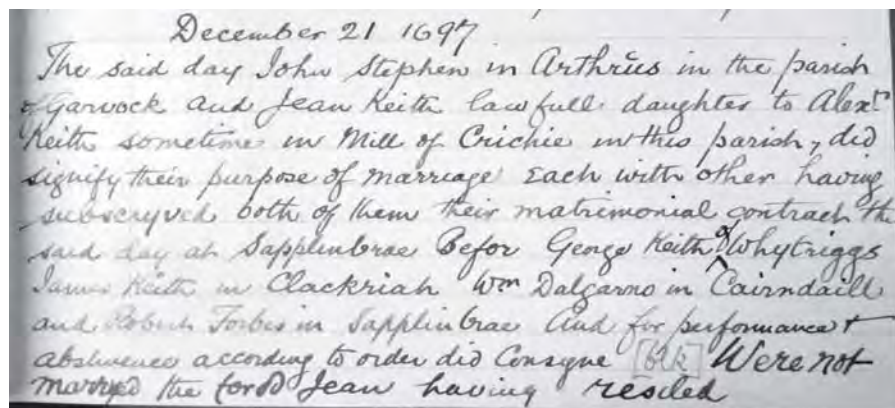 December 21 1697
The said day John Stephen in Arthrus in the parish
of Garvock and Jean Keith lawfull daughter to Alexr
Keith sometime in Mill of Crichie in this parish, did
signify their purpose of marriage Each with other having
subscryved both of them their matrimonial contract the
said day at Sapplinbrae Befor George Keith of Whytriggs
James Keith in Clackriah Wm Dalgarno in Cairndaill
and Robert Forbes in Sapplinbrae And for performance &
abstinence according to order did Consyne Were not
marryed the Jean having resiled